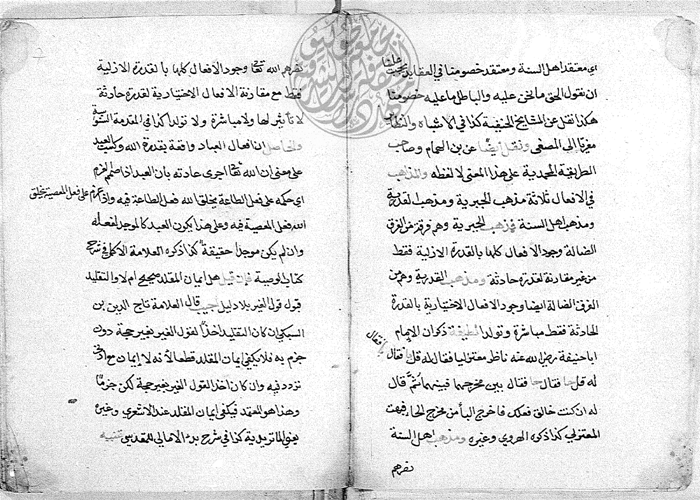 اي معتقد اهل السنة ومعتقد خصومنا في العقايد يجب علينا
ان نقول الحق ما نحن عليه والباطل ما عليه خصومنا
هكذا نقل عن المشايخ الحنفية كذا في الاشباه والنظاير
معزيا الى المصفى ونقل ايضا عن بن الهمام وصاحب
الطريقة المحمدية على هذا المعنى لا لفظه والمذهب
في الافعال ثلاثة مذهب الجبرية ومذهب القدرية
ومذهب اهل السنة فمذهب الجبرية وهم فرقة من الفرق
الضالة وجود الافعال كلها بالقدرة الازلية فقط
من غير مقارنة لقدرة حادثة ومذهب القدرية وهم من
الفرق الضالة ايضا وجود الافعال الاختيارية بالقدرة
الحادثة فقط مباشرة وتولدا لطيفة ذكر ان الامام
ابا حنيفة رضي الله عنه ناظر معتزليا فقال له قل با فقال
له قل حا فقال حا فقال بين مخرجهما فبينهما ثم قال
له ان كنت خالق فعلك فاخرج البا من مخرج الحا فبهت
المعتزلي كذا ذكره الهروي وغيره ومذهب اهل السنة
نفرهم
نفرهم الله تعالى وجود الافعال كلها بالقدرة الازلية
فقط مع مقارنة الافعال الاختيارية لقدرة حادثة
لا تاثير لها ولا مباشرة ولا تولدا كذا في المقدمة السنوسية
والحاصل ان افعال العباد واقعة بقدرة الله وكسب العبد
على معنى ان الله تعالى اجرى عادته بان العبد اذا صمم العزم
اي حكمه على فعل الطاعة يخلق الله فعل الطاعة فيه واذا
عزم على فعل المعصية يخلق
الله فعل المعصية فيه وعلى هذا يكون العبد كالموجد لفعله
وان لم يكن موجدا حقيقة كذا ذكره العلامة الاكمل في شرح
كتاب الوصية فان قيل هل ايمان المقلد صحيح ام لا والتقليد
قبول قول الغير بلا دليل اجيب قال العلامة تاج الدين بن
السبكي ان كان التقليد اخذا لقول الغير بغير حجة دون
جزم به فلا يكفي ايمان المقلد قطعا لانه لا ايمان مع ادنى
تردد فيه وان كان اخذ القول الغير بغير حجة لكن جزما
وهذا هو المعتمد فيكفي ايمان المقلد عند الاشعري وغيره
يعني الماتريدية كذا في شرح بدء الامالي للمقدسي تنبيه